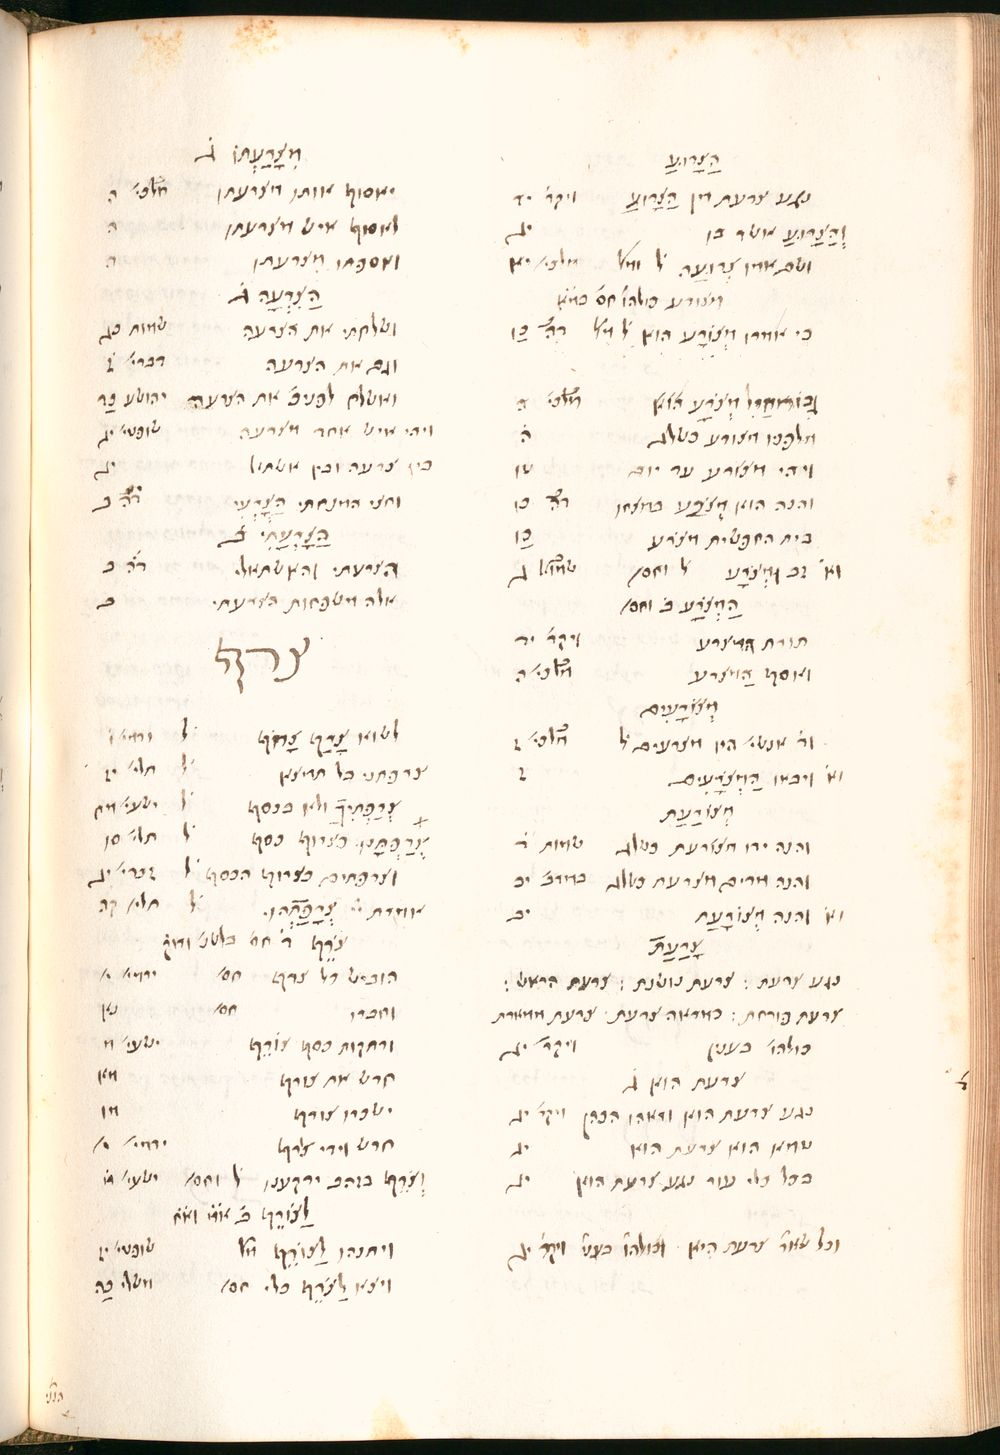 הַצָּרוּעַ
נגע צרעת דין הַצָּרוּעַ ויקר׳ יד
וְהַצָּרוּעַ אשר בו יג
ושם אמו צְרוּעָה ל׳ ומל׳ מלכי׳ יא
מצורע כולהו חס׳
כי אמרו מְצוֹרָע הוא ל׳ מל׳ דה׳ כו
מְצֹרָע הוא מלכי׳ ה
מלפניו מצורע כשלג ה
ויהי מצורע עד יום טו
והנה הוא מְצֹרָע במצחו דה׳ כו
בית החפשית מצרע כו
וא׳ זב וּמְצֹרָע ל׳ וחס׳ שמוא׳ ג
הַמְּצֹרָע ב׳ וחס׳
תורת המצרע ויקר׳ יד
ואסף המצרע מלכי׳ ה
מְצוֹרָעִים
וד׳ אנשי׳ היו מצרעים ל׳ מלכי׳ ז
וא׳ ויבאו הַמְּצֹרָעִים ז
מְצוֹרַעַת
והנה ידו מצורעת כשלג שמות ד
והנה מרים מצרעת כשלג במדב׳ יב
וא׳ והנה מְצוֹרָעַת יב
צָרַעַת
נגע צרעת : צרעת נושנת : צרעת הראש :
צרעת פורחת : כמראה צרעת צרעת ממארת
כולהו׳ בענין ויקר׳ יג
צרעת הוא ג׳
נגע צרעת הוא וראהו הכהן ויקר׳ יג
טמא הוא צרעת הוא יג
בכל כלי עור נגע צרעת הוא יג
וכל שאר׳ צרעת היא וכולהו׳ בעני׳ ויקר׳ יג
מִצָּרַעְתּוֹ ג׳
יאסוף אותו מצרעתו מלכי׳ ה
לאסוף איש מצרעתו ה
ואספתו מצרעתו ה
הַצִּרְעָה ג׳
ושלחתי את הצרעה שמות כג
וגם את הצרעה דברי׳ ז
ואשלח לפניכ׳ את הצרעה יהושע כד
ויהי איש אחד מצרעה שופטי׳ יג
בין צרעה ובין אשתול יג
וחצי המנחתי הַצָּרְעִי דה׳ ב
הַצָּרְעָתִי ב׳
הצרעתי והאשתאלי דה׳ ב
אלה משפחות הצרעתי ב
צרף
לשוא צָרַף צָרוֹף ל׳ ירמי׳ ו
צרפתני בל תמצא ל׳ תלי׳ יז
צְרַפְתִּיךָ ולא בכסף ל׳ ישעי׳ מח
צְרַפְתָּנוּ כצרוף כסף ל׳ תלי׳ סו
וצרפתים כצרוף הכסף ל׳ זכרי׳ יג
אמרת יי׳ צְרָפָתְהוּ ל׳ תלי׳ קה
הוביש כל צרף חס׳ ירמי׳ י
וחברו חס׳ נא
ורתקות כסף צוֹרֵף ישעי׳ מ
חרש את צורף מא
ישכרו צורף מו
חרש וידי צרף ירמי׳ י
וְצֹרֵף בזהב ירקענו ל׳ וחס׳ ישעי׳ מ
לַצּוֹרֵף ב׳
ויתנהו לַצּוֹרֵף מל׳ שופטי׳ יז
ויצא לַצֹּרֵף כלי חס׳ משלי כה